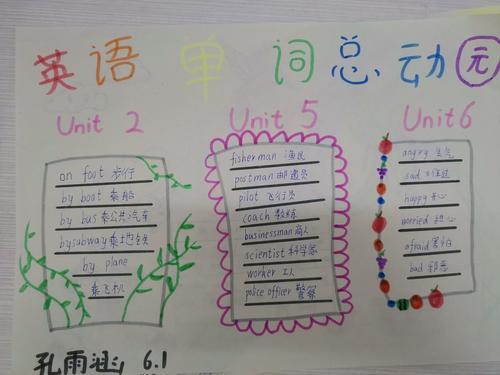 英语单词总动元
Unit 2
on foot 步行
by boat 乘船
by bus 乘公共汽车
bysubway 乘地铁
by plane
乘飞机
Unit 5
fisherman 渔民
postman 邮递员
pilot 飞行员
coach 教练
businessman 商人
scientist 科学家
worker 工人
police officer 警察
Unit 6
angry 生气
sad 难过
happy 开心
worried 担心
afraid 害怕
bad 邪恶
孔雨涵 6.1